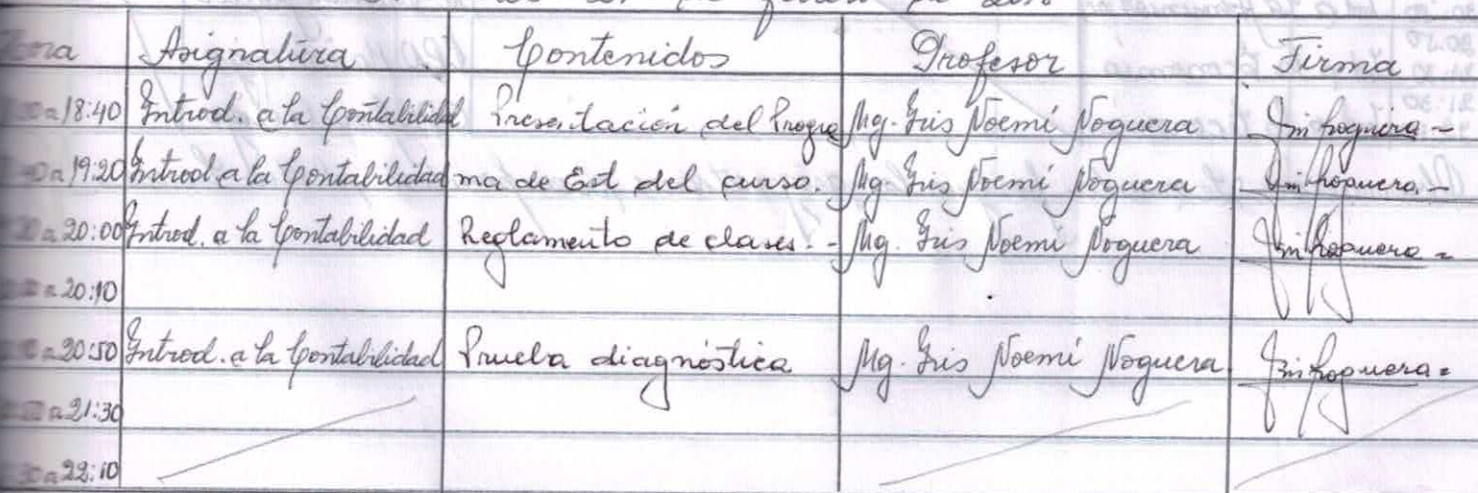 Hora Asignatura Contenidos Profesor Firma
a 18:40 Introd. a la Contabilidad Presentación del Progra Mg. Iris Noemí Noguera
a 19:20 Introd. a la Contabilidad ma de Est del curso. Mg. Iris Noemí Noguera
a 20:00 Introd. a la Contabilidad Reglamento de clases. - Mg. Iris Noemí Noguera
a 20:10
a 20:50 Introd. a la Contabilidad Prueba diagnóstica Mg. Iris Noemí Noguera
a 21:30
a 22:10